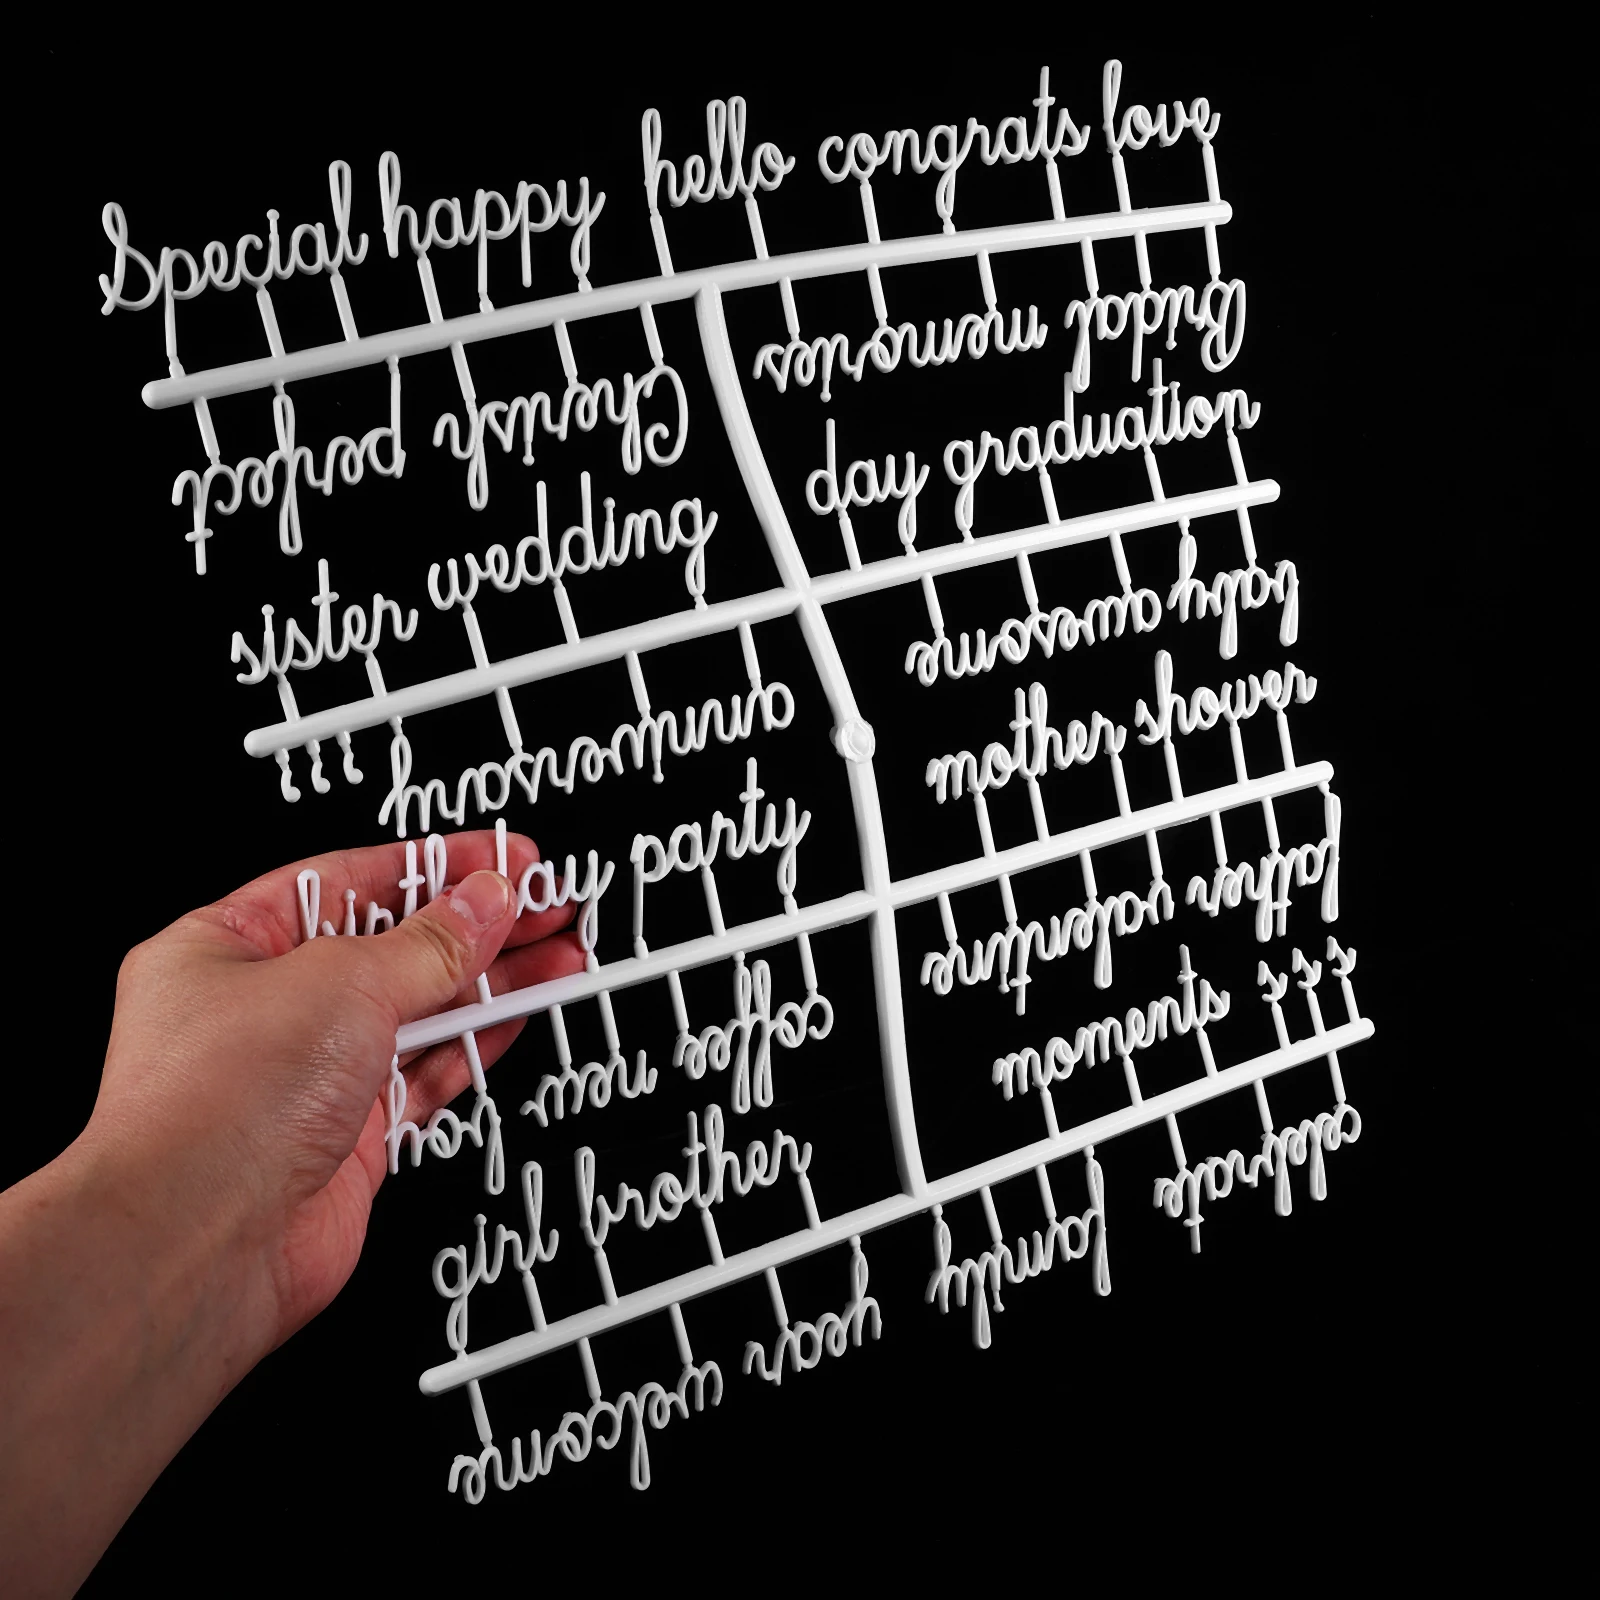 Special happy hello congrats love
Cherish perfect
Bridal memories
sister wedding
day graduation
anniversary
baby awesome
birthday party
mother shower
coffee new boy
father valentine
girl brother
moments s s s
welcome year family celebrate